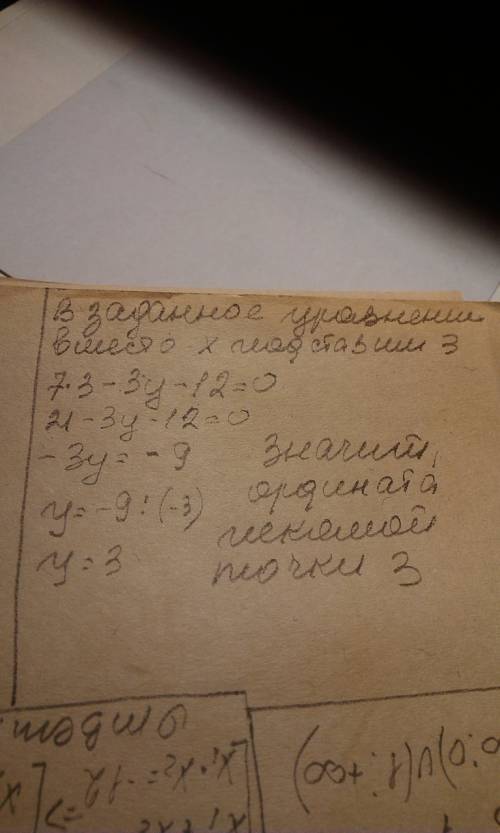 В заданное уравнении
вместо x подставим 3
7·3 - 3y - 12 = 0
21 - 3y - 12 = 0
-3y = -9
y = -9 : (-3)
y = 3
Значит,
ордината
искомой
точки 3
;0)∪(1; +∞)
x₁·x₂ = -12